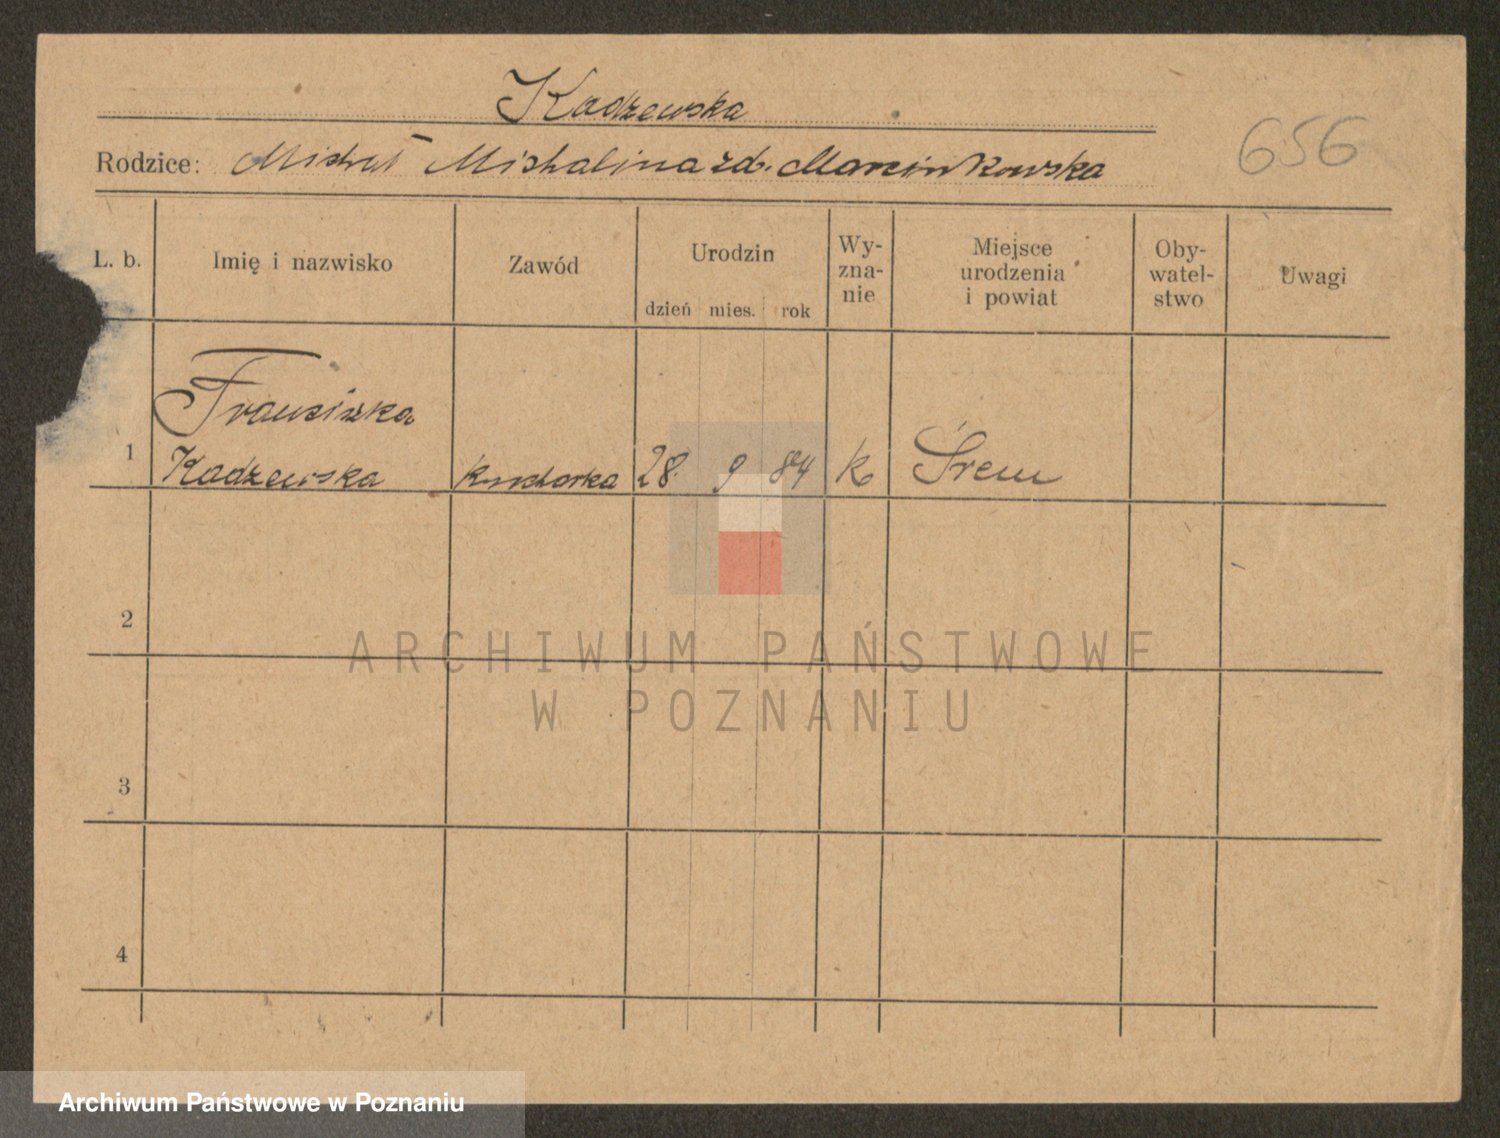 Kadzewska
Rodzice: Michał Michalina zd. Marcinkowska
656
L. b. Imię i nazwisko Zawód Urodzin Wy-
zna-
nie Miejsce
urodzenia
i powiat Oby-
watel-
stwo Uwagi
dzień mies. rok
Franciszka
1 Kadzewska kucharka 28. 9 84 k Śrem
2
3
4
ARCHIWUM PAŃSTWOWE
W POZNANIU
Archiwum Państwowe w Poznaniu